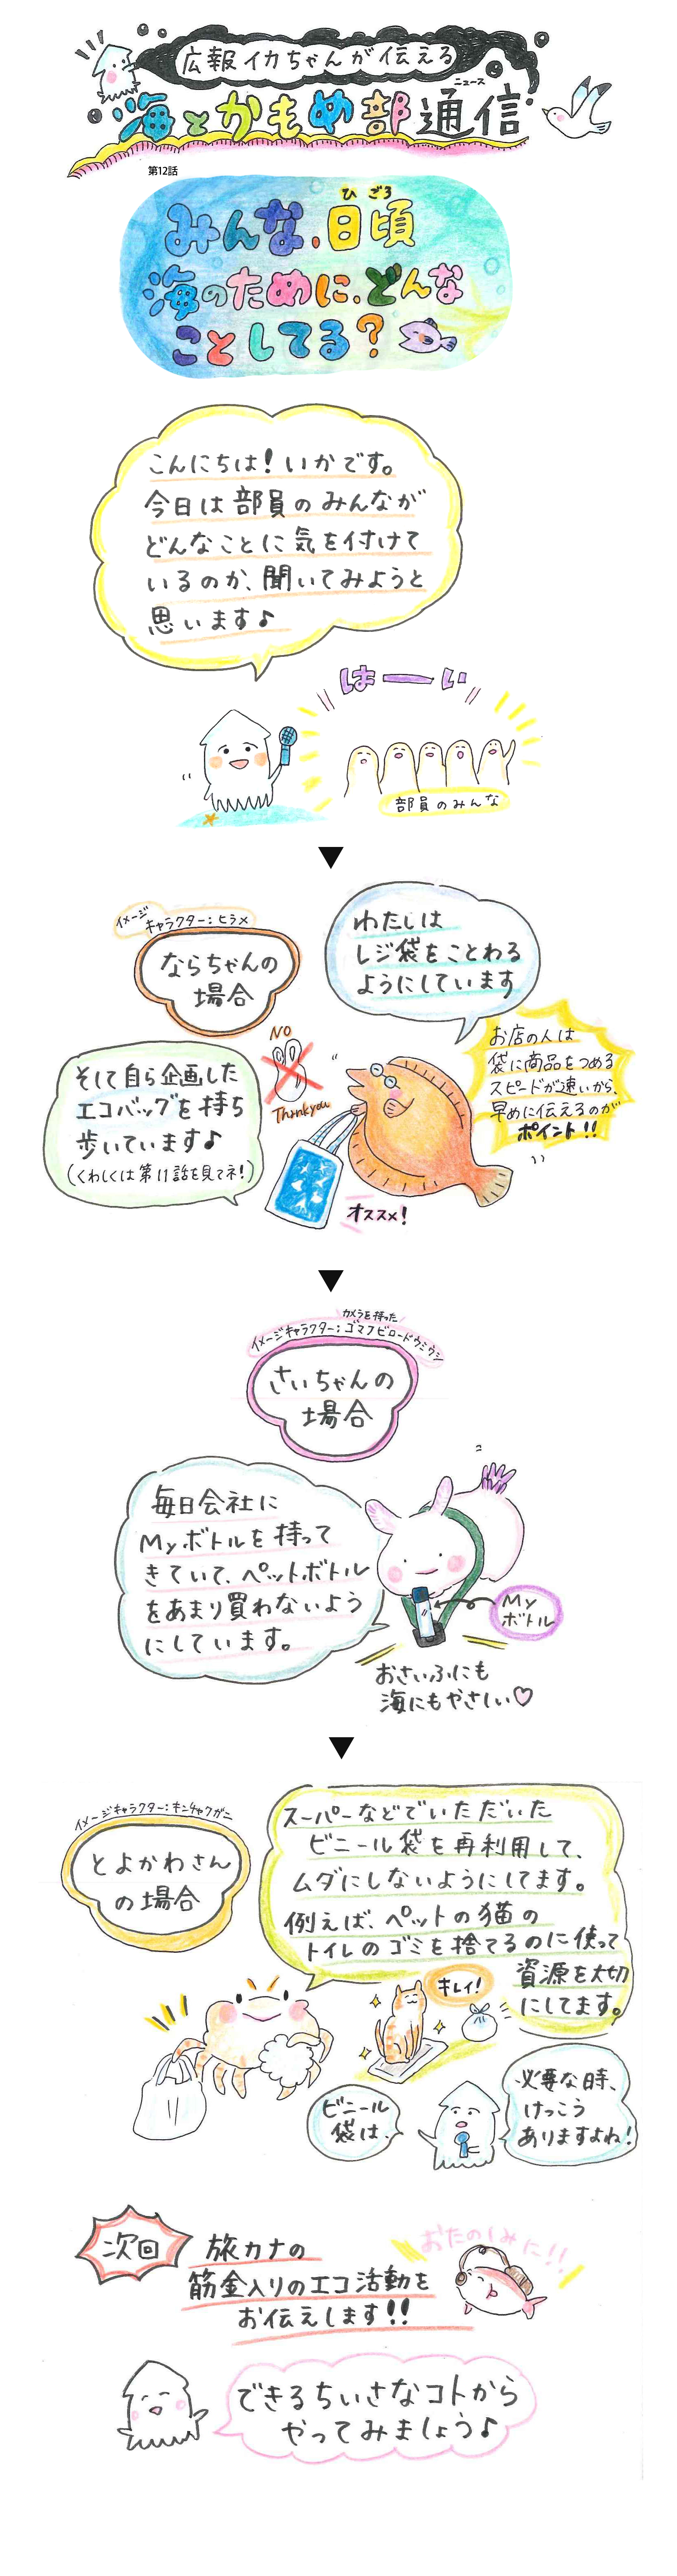 広報イカちゃんが伝える
海とかもめ部通信
ニュース
第12話
みんな、日頃
ひごろ
海のために、どんな
ことしてる?
こんにちは!いかです。
今日は部員のみんなが
どんなことに気を付けて
いるのか、聞いてみようと
思います♪
はーい
部員のみんな
イメージ
キャラクター:ヒラメ
ならちゃんの
場合
わたしは
レジ袋をことわる
ようにしています
お店の人は
袋に商品をつめる
スピードが速いから、
早めに伝えるのが
ポイント!!
NO
Thankyou
そして自ら企画した
エコバッグを持ち
歩いています♪
(くわしくは第11話を見てネ!)
オススメ!
カメラを持った
イメージキャラクター:ゴマフビロードウミウシ
さいちゃんの
場合
毎日会社に
Myボトルを持って
きていて、ペットボトル
をあまり買わないよう
にしています。
My
ボトル
おさいふにも
海にもやさしい♡
イメージキャラクター:キンチャクガニ
とよかわさん
の場合
スーパーなどでいただいた
ビニール袋を再利用して、
ムダにしないようにしてます。
例えば、ペットの猫の
トイレのゴミを捨てるのに使って
資源を大切
にしてます。
キレイ!
ビニール
袋は、
必要な時、
けっこう
ありますよね!
次回
旅カナの
筋金入りのエコ活動を
お伝えします!!
おたのしみに!!
できるちいさなコトから
やってみましょう♪